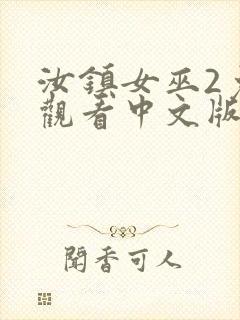 汝鎮女巫2
觀看中文版
聞香可人